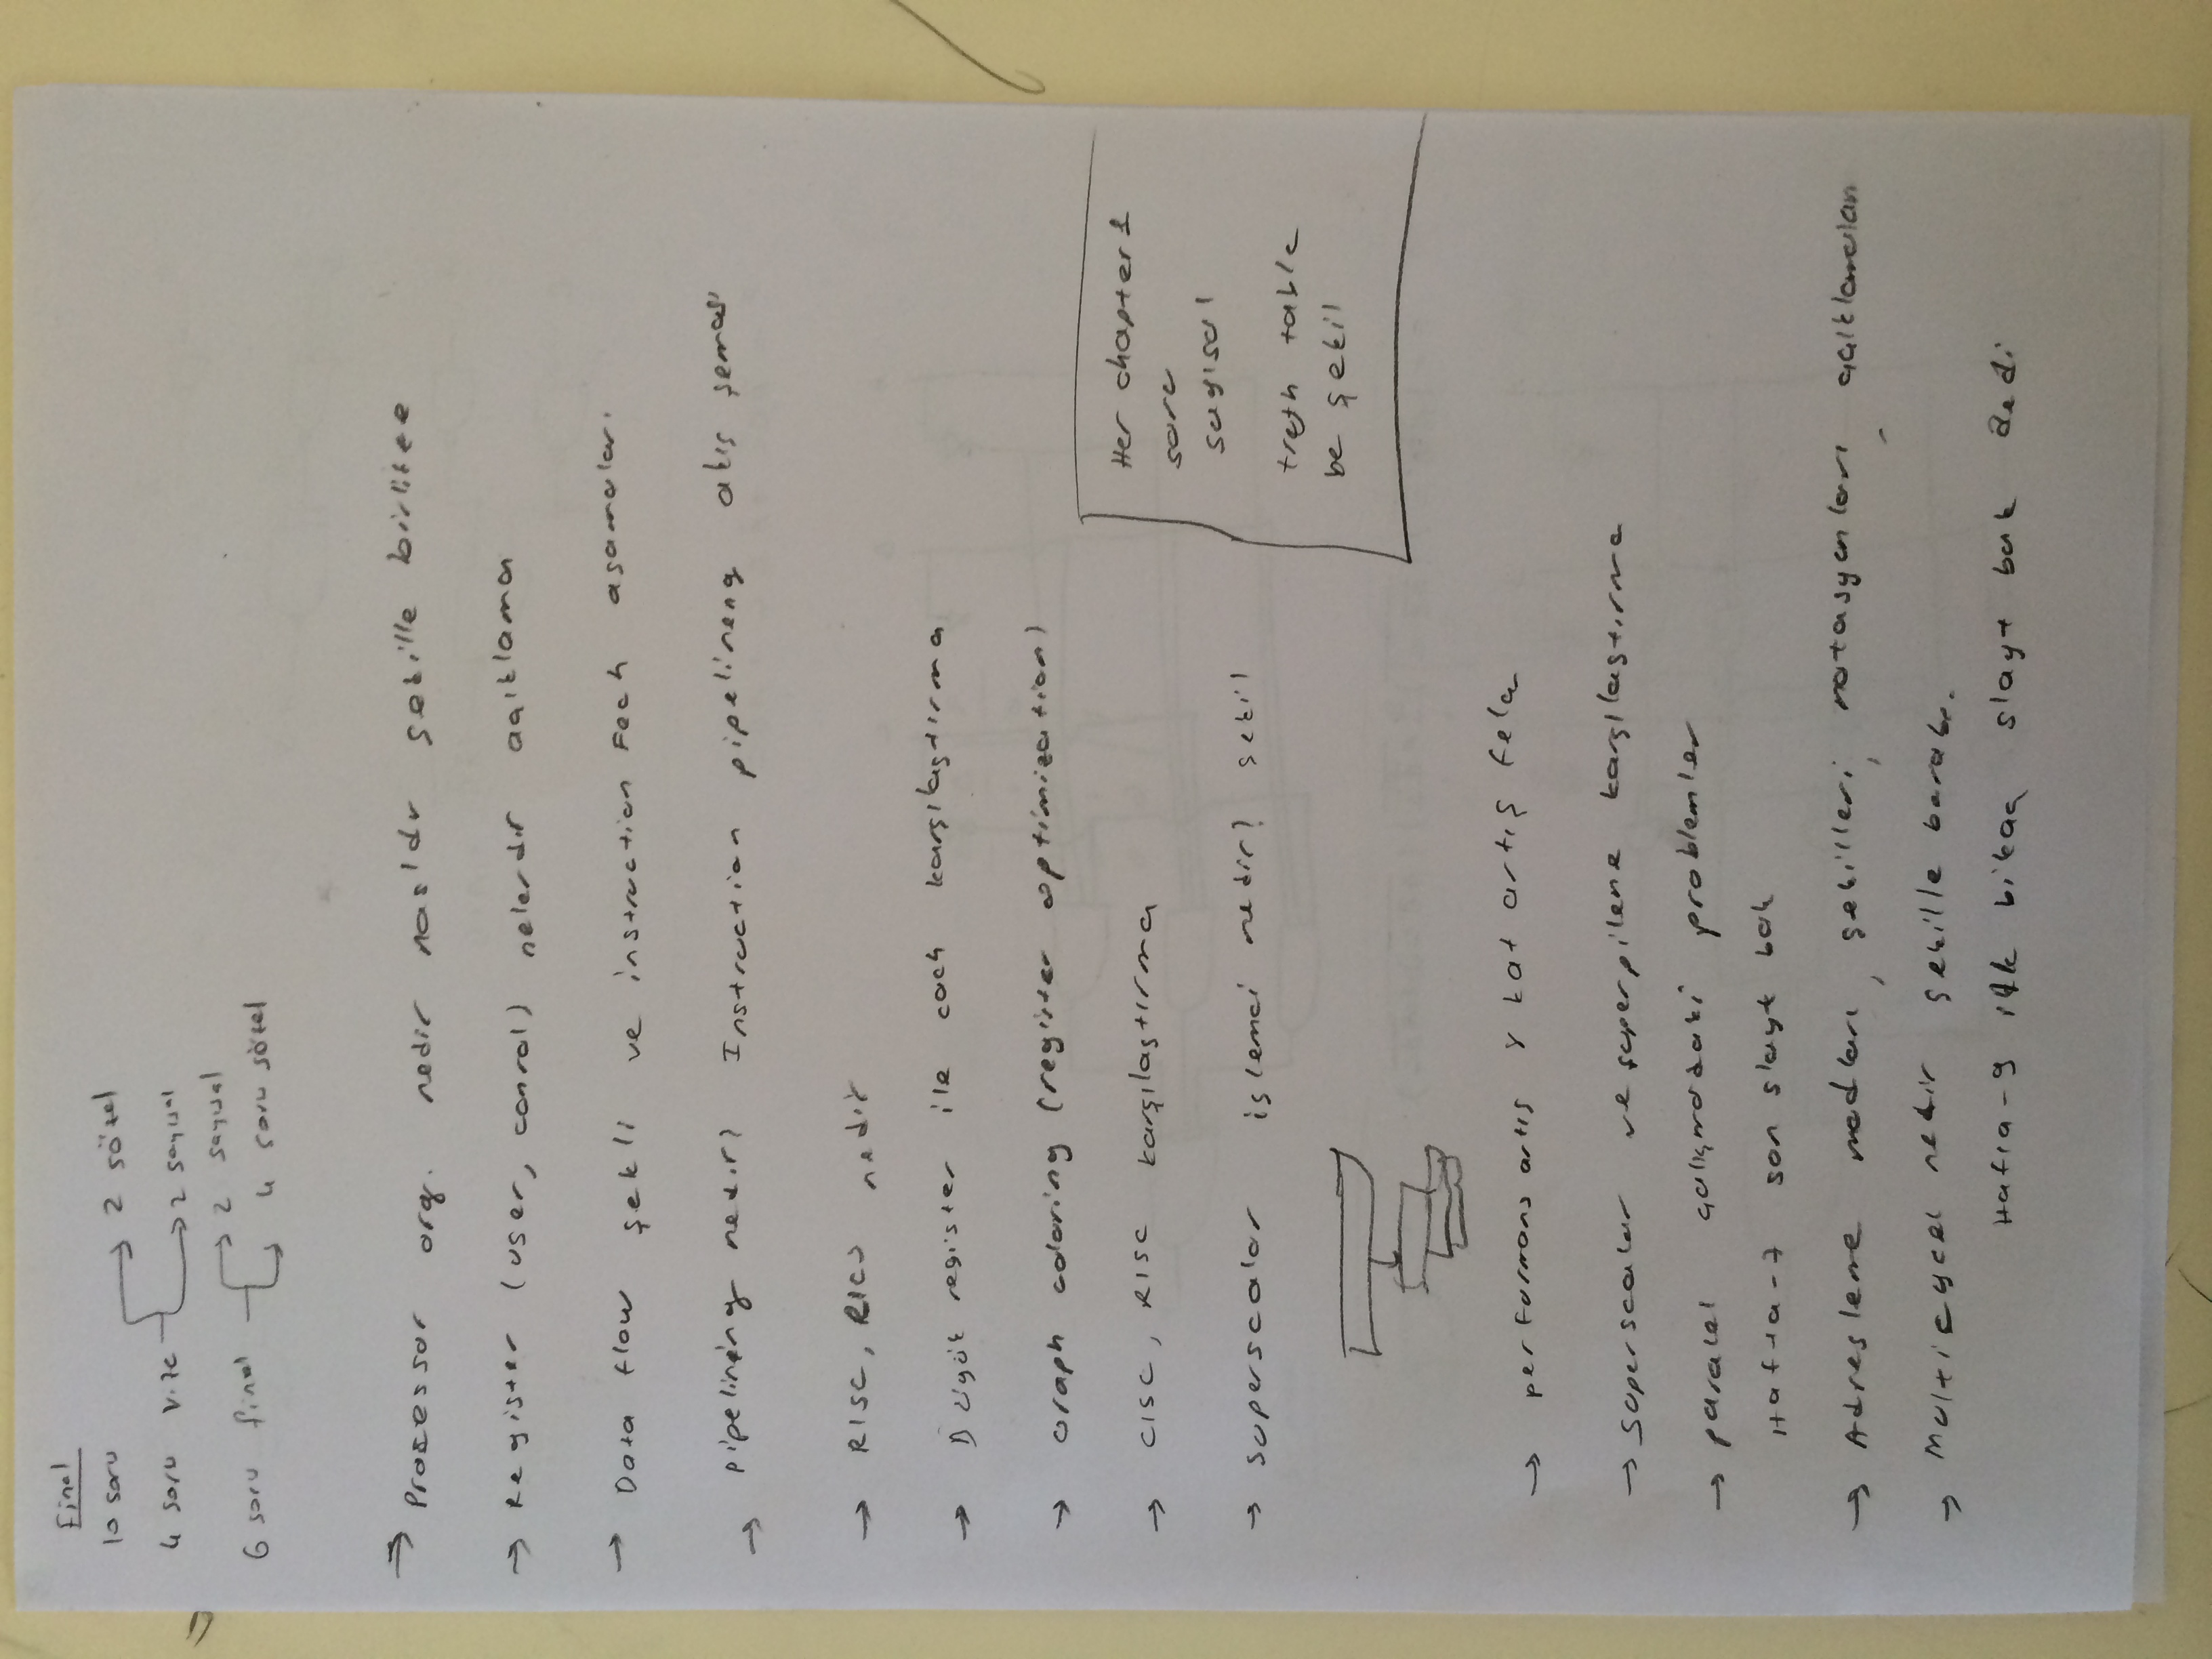 Final
10 soru
4 soru vize → 2 sözel
→ 2 sayısal
6 soru final → 2 sayısal
→ 4 soru sözel
⇒ Processor org. nedir nasıldır şekille birlikte
→ Register (user, conrol) nelerdir açıklama
→ Data flow şekli ve instruction Fech aşamaları
→ pipelining nedir? Instruction pipelineng akış şeması
→ RISC, RICS nedir
→ Büyük register ile cach karşılaştırma
→ Graph coloring (register optimization)
→ CISC, RISC karşılaştırma
→ superscalar işlemci nedir? şekil
Her chapter 1
soru
sayısal
truth table
be şekil
→ performans artış kat artış felan
→ Superscalar ve superpilene karşılaştırma
→ paralel çalışmadaki problemler
Hafta-7 son slayt bak
→ Adresleme modları, şekilleri, notasyonları, açıklamaları
→ Multicycel nedir şekille beraber
Hafta-9 ilk bikaç slayt bak dedi